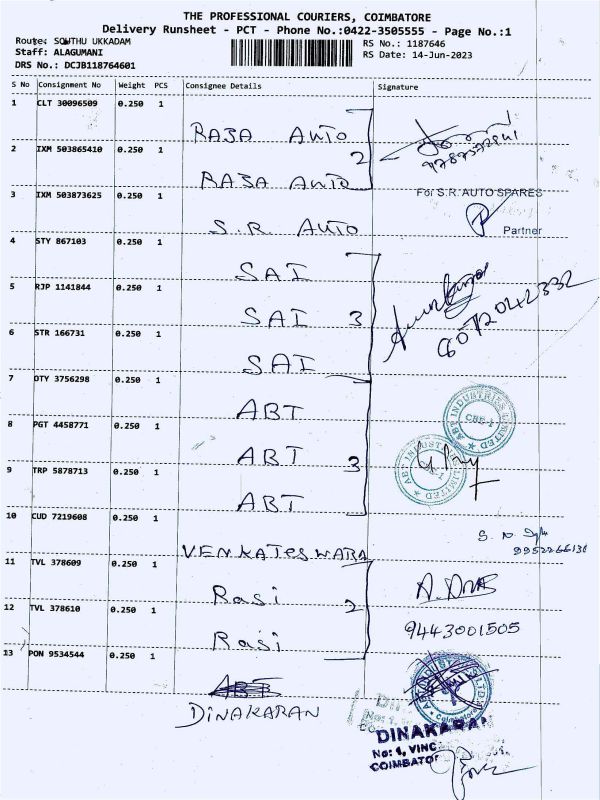 THE PROFESSIONAL COURIERS, COIMBATORE
Delivery Runsheet - PCT - Phone No.:0422-3505555 - Page No.:1
Route: SOUTHU UKKADAM
Staff: ALAGUMANI
DRS No.: DCJB118764601
RS No.: 1187646
RS Date: 14-Jun-2023
S No Consignment No Weight PCS Consignee Details Signature
1 CLT 30096509 0.250 1
RAJA AUTO
2 IXM 503865410 0.250 1
2
RAJA AUTO
3 IXM 503873625 0.250 1
For S.R. AUTO SPARES
Partner
S.R. AUTO
4 STY 867103 0.250 1
SAI
5 RJP 1141844 0.250 1
SAI 3
6072042332
6 STR 166731 0.250 1
SAI
7 OTY 3756298 0.250 1
ABT
ABT INDUSTRIES LIMITED
CBE-1
8 PGT 4458771 0.250 1
ABT 3
ABT INDUSTRIES LIMITED
9 TRP 5878713 0.250 1
ABT
10 CUD 7219608 0.250 1
VENKATESWARA
9952266130
11 TVL 378609 0.250 1
Rasi 2
12 TVL 378610 0.250 1
9443001505
Rasi
13 PON 9534544 0.250 1
ABT
DINAKARAN
DINAKARAN
No: 1, VINC
COIMBATOR